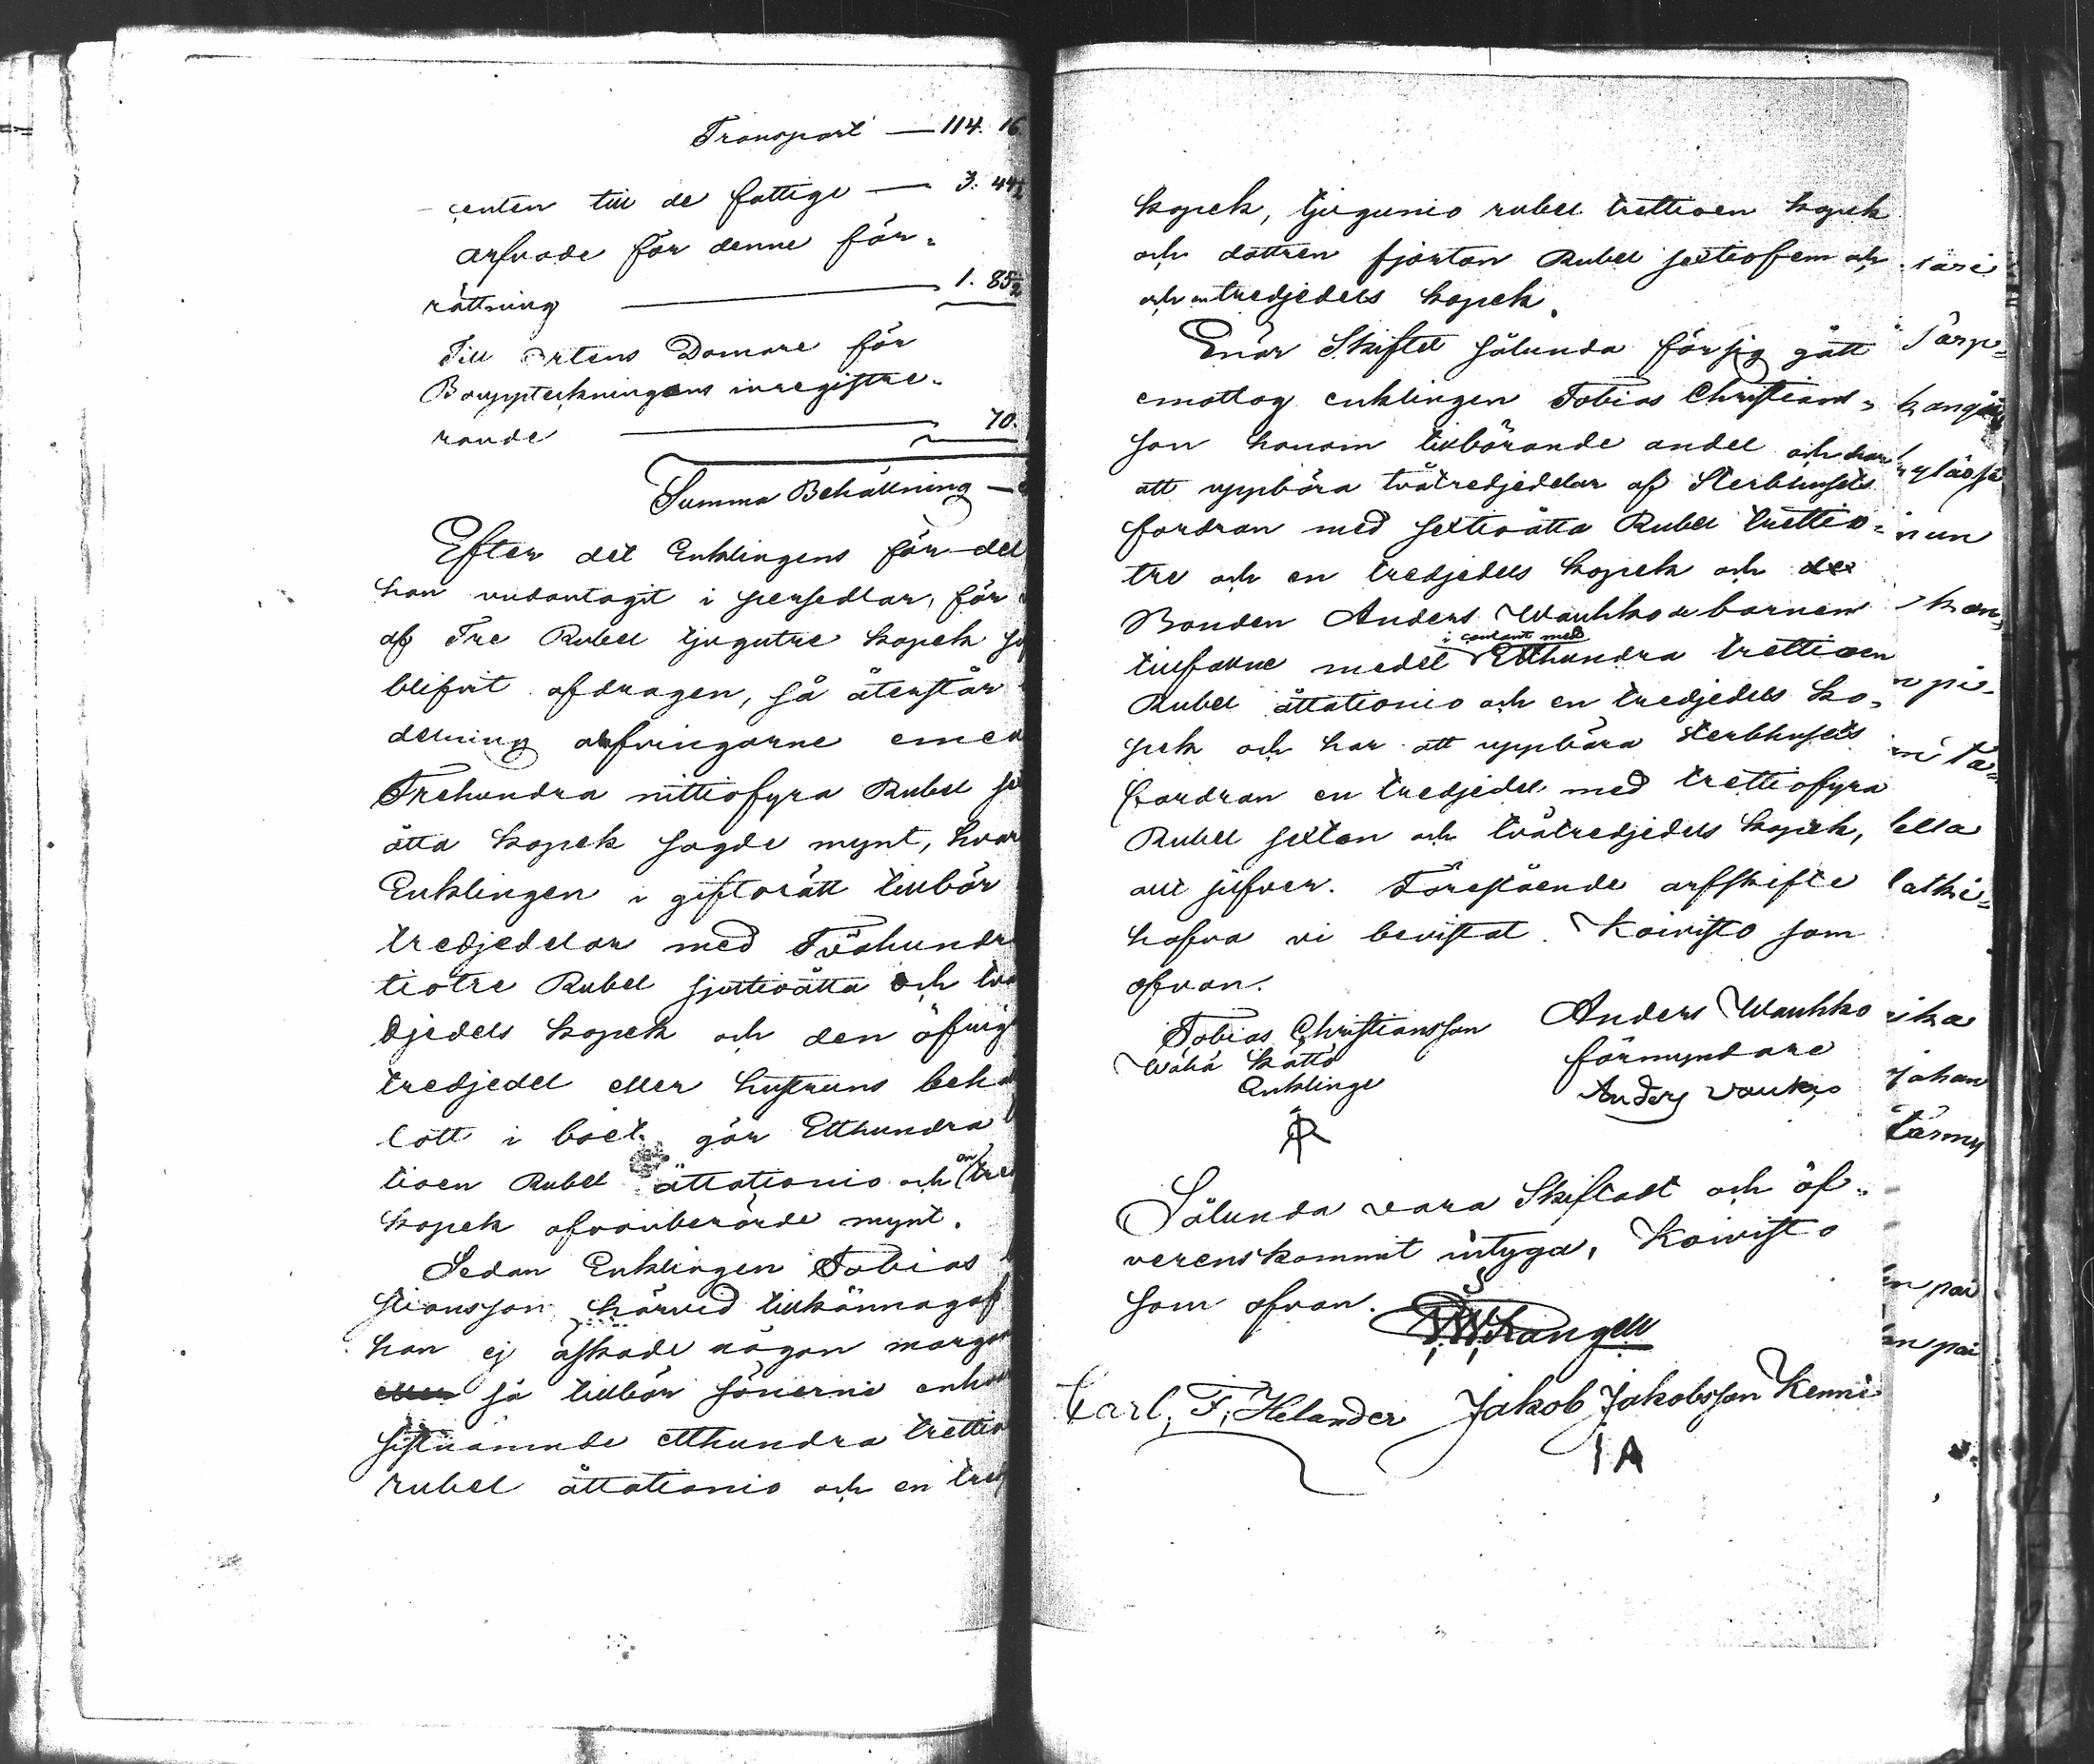 Transport — 114. 16.
centen till de fattige — 3. 44½
arfvode för denne för=
rättning — 1. 85½
Till Ortens Domare för
Bouppteckningens inregistre=
rande — 70.
Summa Behållning —
Efter det Enklingens för del
han undantagit i persedlar, för
af Tre Rubel tjugutre kopek
blifvit afdragen, så återstår
delning arfvingarne eme
Trehundra nittiofyra Rubel
åtta kopek sagde mynt, hvar
Enklingen i giftorätt tillbör
tredjedelar med Tvåhundr
tiotre Rubel sjuttioåtta och två
djedels kopek och den öfrig
tredjedel eller hustruns beh
lott i boet gör Etthundra
tioen Rubel åttationio och en tre
kopek ofvanberörde mynt.
Sedan Enklingen Tobias
stiansson härvid tillkännagaf
han ej åskade någon morgon
eller så tillbör sönerne enhvar
sistnämnde etthundra trettio
rubel åttationio och en tred
kopek, tjugunio rubel trettioen kopek
och dottren fjorton Rubel sextiofem och
och en tredjedels kopek.
Enär Skiftet sålunda försig gått
emottog enklingen Tobias Christians=
son honom tillbörande andel och har
att uppbära tvåtredjedelar af Sterbhusets
fordran med sextioåtta Rubel trettio=
tre och en tredjedels kopek och de
Bonden Anders Wauhko de barnen
i contant med
tillfallne medel Etthundra trettioen
Rubel åttationio och en tredjedels ko=
pek och har att uppbära sterbhusets
fordran en tredjedel med trettiofyra
Rubel sexton och tvåtredjedels kopek,
allt silfver. Förestående arfskifte
hafva vi bevistat. Koivisto som
ofvan.
Tobias Christiansson
Wähä Kattô
Enklinge
Anders Wauhko
förmyndare
Anders Vauko
Sålunda vara Skiftadt och öf=
verenskommit intyga, Koivisto
som ofvan.
Krangell
Carl. F. Helander Jakob Jakobsson Kenni
I A
sari
Särp=
kangas
nyläsjä
nun
kan=
pi=
ni ta=
lella
latki=
ika
johan
tämy
n pai
n pai